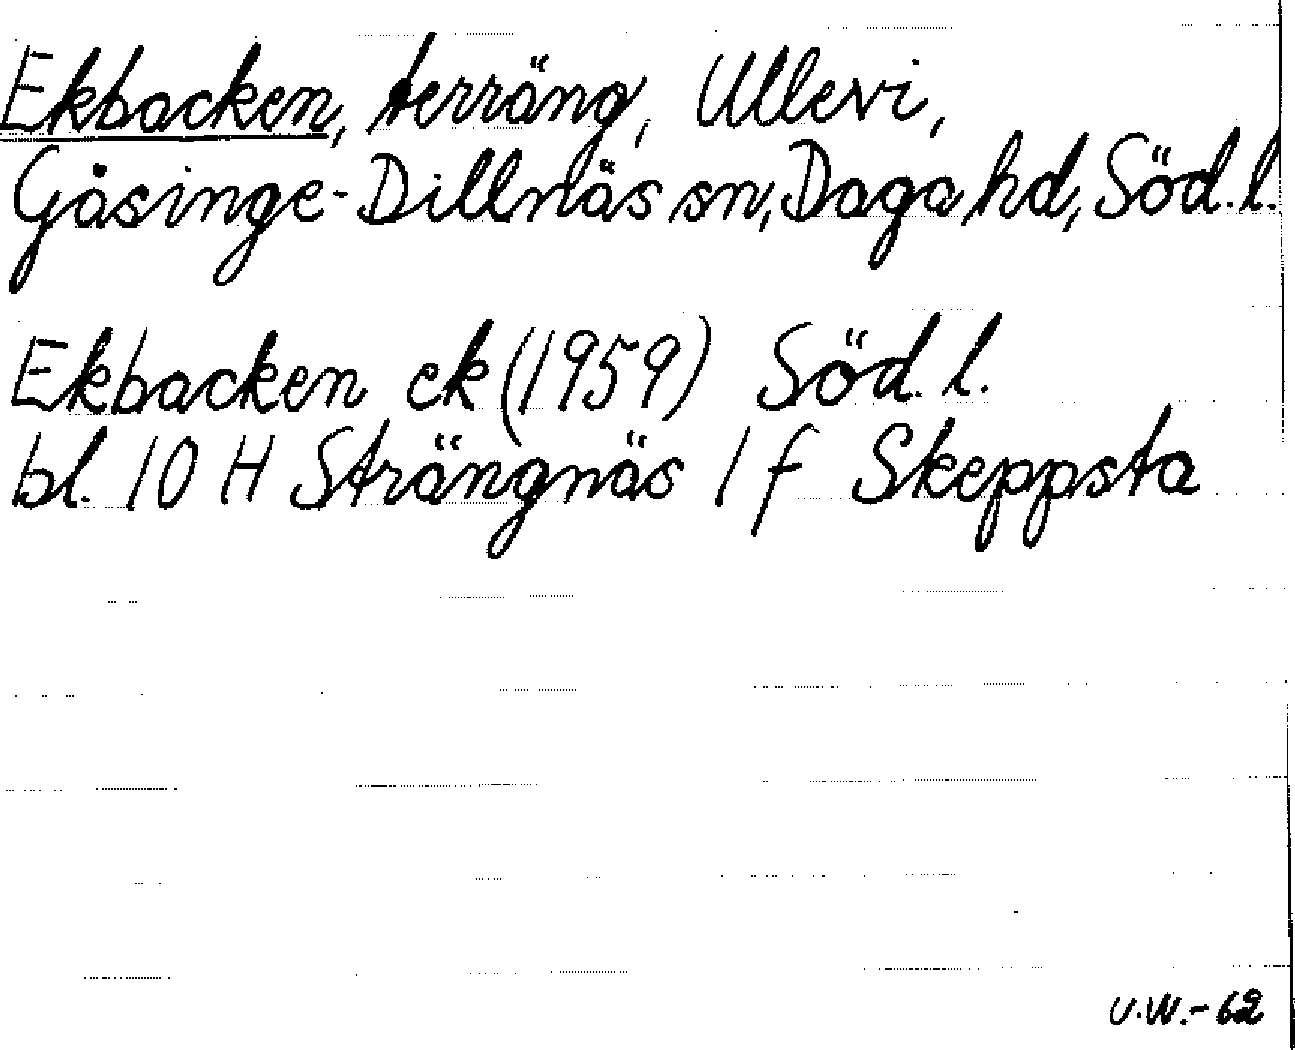 Ekbacken, terräng, Ullevi,
Gåsinge-Dillnäs sn, Daga hd, Söd. l.
Ekbacken ek (1959) Söd. l.
bl. 10 H Strängnäs 1 f Skeppsta
U.W.-62